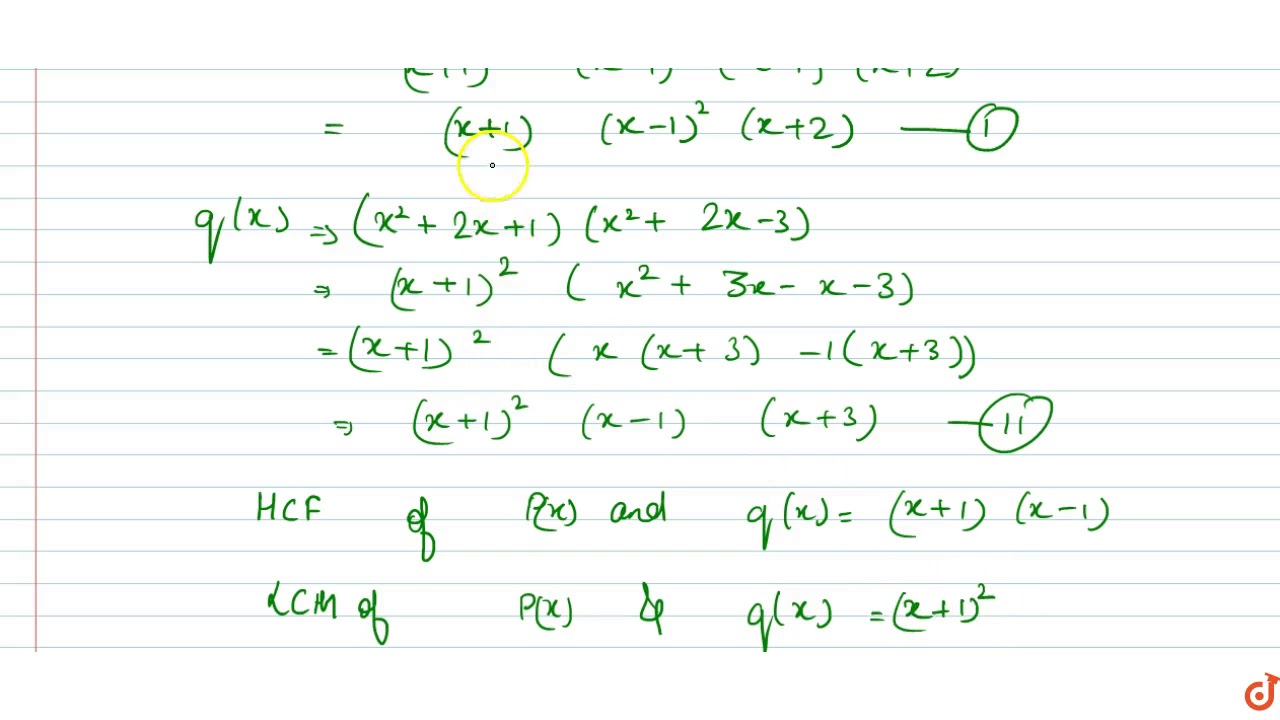 = (x+1) (x-1)² (x+2) — I
q(x) ⇒ (x² + 2x+1) (x² + 2x-3)
⇒ (x+1)² ( x² + 3x - x - 3)
= (x+1)² ( x (x+3) -1 (x+3))
⇒ (x+1)² (x-1) (x+3) — II
HCF of P(x) and q(x) = (x+1) (x-1)
LCM of P(x) & q(x) = (x+1)²